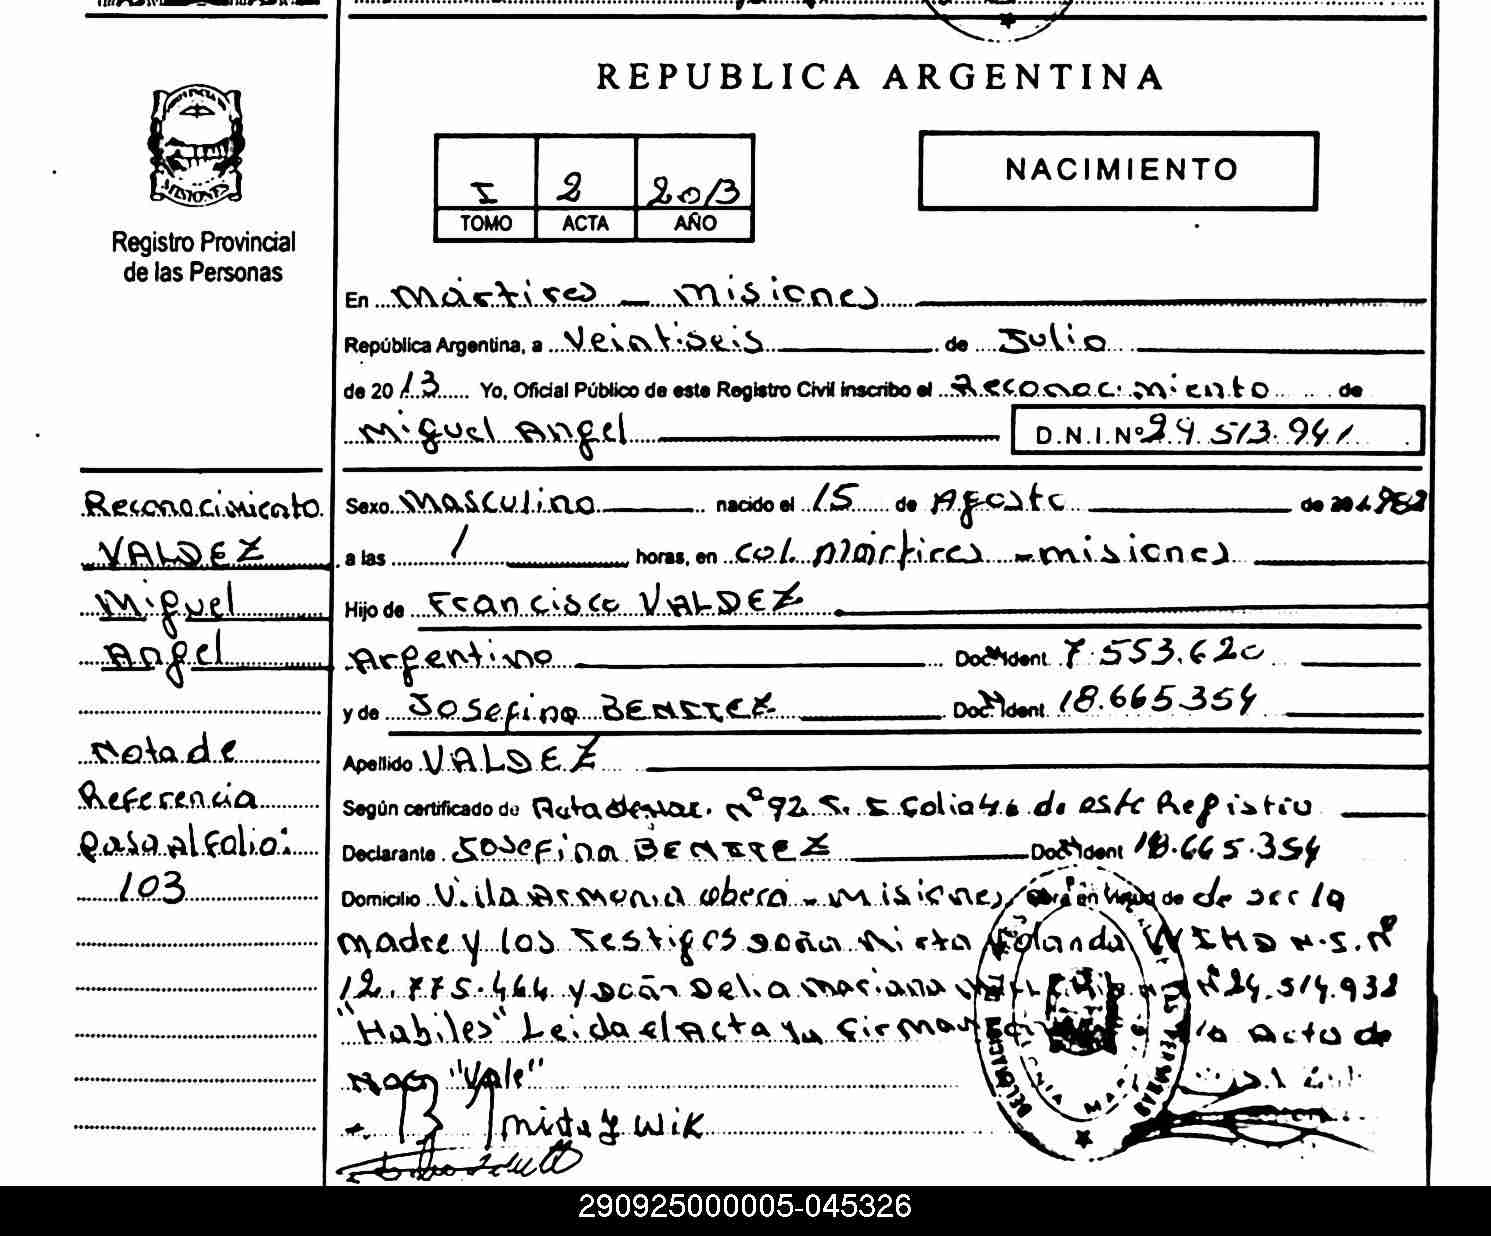 REPUBLICA ARGENTINA
PROVINCIA DE
MISIONES
Registro Provincial
de las Personas
I 2 2013
TOMO ACTA AÑO
NACIMIENTO
En Mártires - Misiones
República Argentina, a Veintiseis de Julio
de 2013 Yo, Oficial Público de este Registro Civil inscribo el Reconocimiento de
Miguel Angel D.N.I.Nº 24.513.941
Reconocimiento
VALDEZ
Miguel
Angel
Nota de
Referencia
pasa al folio:
103
Sexo Masculino nacido el 15 de Agosto de
a las 1 horas, en Col. Mártires - Misiones
Hijo de Francisco VALDEZ
Argentino Doc. Ident. 7.553.620
y de Josefina BENITEZ Doc. Ident. 18.665.354
Apellido VALDEZ
Según certificado de Acta de Nac. Nº 92 folio de este Registro
Declarante Josefina BENITEZ Doc. Ident 18.665.354
Domicilio Villa Armonia Oberá - Misiones en virtud de de ser la
madre y los Testigos doña Mirta Yolanda Nº
12.775.464 y doña Delia Mariana Nº 24.514.938
"Habiles" Leida el Acta la Acta de
Nac "Vale"
Mirta Y Wik
290925000005-045326